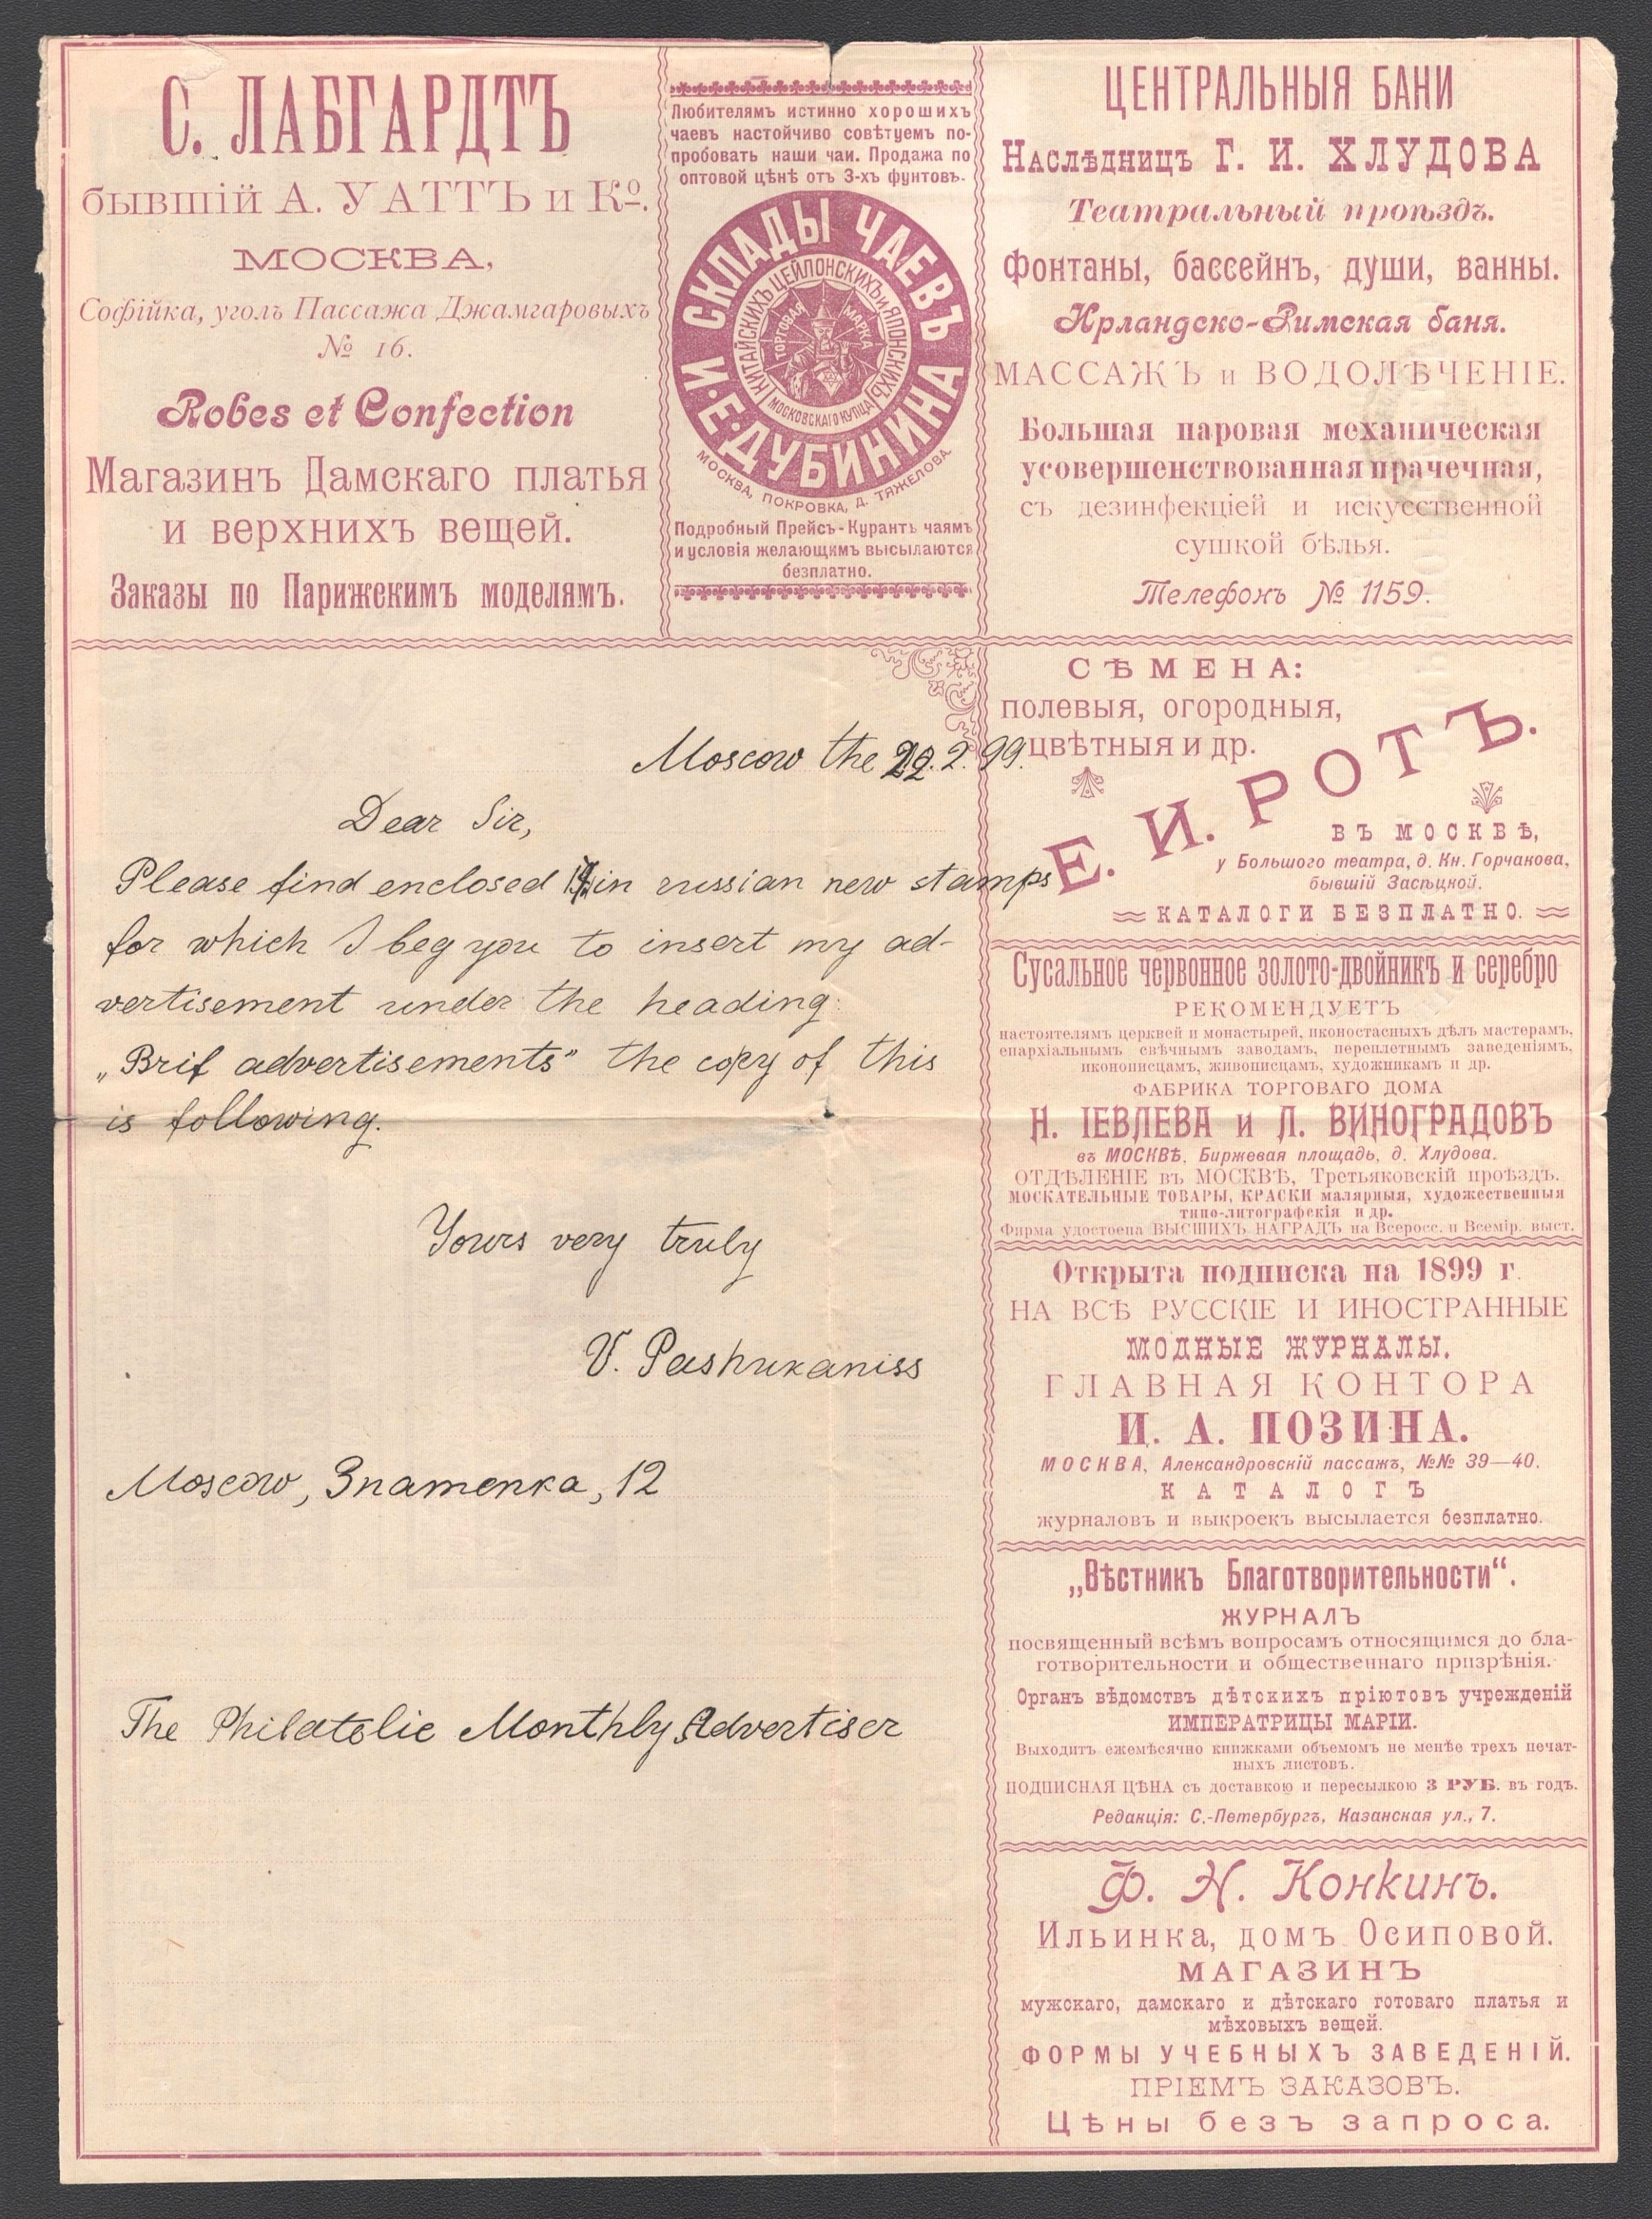 С. ЛАБГАРДТЪ
бывшій А. УАТТЪ и Ко.
МОСКВА,
Софійка, уголъ Пассажа Джамгаровыхъ
№ 16.
Robes et Confection
Магазинъ Дамскаго платья
и верхнихъ вещей.
Заказы по Парижскимъ моделямъ.
Любителямъ истинно хорошихъ
чаевъ настойчиво совѣтуемъ по-
пробовать наши чаи. Продажа по
оптовой цѣнѣ отъ 3-хъ фунтовъ.
СКЛАДЫ ЧАЕВЪ
И. Е. ДУБИНИНА
КИТАЙСКИХЪ ЦЕЙЛОНСКИХЪ и ЯПОНСКИХЪ
МОСКОВСКАГО КУПЦА
ТОРГОВАЯ МАРКА
МОСКВА, ПОКРОВКА, Д. ТЯЖЕЛОВА.
Подробный Прейсъ-Курантъ чаямъ
и условія желающимъ высылаются
безплатно.
ЦЕНТРАЛЬНЫЯ БАНИ
Наслѣдницъ Г. И. ХЛУДОВА
Театральный проѣздъ.
Фонтаны, бассейнъ, души, ванны.
Ирландско-Римская баня.
МАССАЖЪ и ВОДОЛѢЧЕНІЕ.
Большая паровая механическая
усовершенствованная прачечная,
съ дезинфекціей и искусственной
сушкой бѣлья.
Телефонъ № 1159.
Moscow the 22.2.99.
Dear Sir,
Please find enclosed in russian new stamps
for which I beg you to insert my ad-
vertisement under the heading:
„Brif advertisements" the copy of this
is following.
Yours very truly
V. Pashukaniss
Moscow, Знаменка, 12
The Philatelic Monthly Advertiser
СѢМЕНА:
полевыя, огородныя,
цвѣтныя и др.
Е. И. РОТЪ.
ВЪ МОСКВѢ,
у Большого театра, д. Кн. Горчакова,
бывшій Засѣцкой.
КАТАЛОГИ БЕЗПЛАТНО.
Сусальное червонное золото-двойникъ и серебро
РЕКОМЕНДУЕТЪ
настоятелямъ церквей и монастырей, иконостасныхъ дѣлъ мастерамъ,
епархіальнымъ свѣчнымъ заводамъ, переплетнымъ заведеніямъ,
иконописцамъ, живописцамъ, художникамъ и др.
ФАБРИКА ТОРГОВАГО ДОМА
Н. ІЕВЛЕВА и Л. ВИНОГРАДОВЪ
въ МОСКВѢ, Биржевая площадь, д. Хлудова.
ОТДѢЛЕНІЕ въ МОСКВѢ, Третьяковскій проѣздъ.
МОСКАТЕЛЬНЫЕ ТОВАРЫ, КРАСКИ малярныя, художественныя
типо-литографскія и др.
Фирма удостоена ВЫСШИХЪ НАГРАДЪ на Всеросс. и Всемір. выст.
Открыта подписка на 1899 г.
НА ВСѢ РУССКІЕ И ИНОСТРАННЫЕ
МОДНЫЕ ЖУРНАЛЫ.
ГЛАВНАЯ КОНТОРА
И. А. ПОЗИНА.
МОСКВА, Александровскій пассажъ, №№ 39—40.
КАТАЛОГЪ
журналовъ и выкроекъ высылается безплатно.
„Вѣстникъ Благотворительности“.
ЖУРНАЛЪ
посвященный всѣмъ вопросамъ относящимся до бла-
готворительности и общественнаго призрѣнія.
Органъ вѣдомствъ дѣтскихъ пріютовъ учрежденій
ИМПЕРАТРИЦЫ МАРІИ.
Выходитъ ежемѣсячно книжками объемомъ не менѣе трехъ печат-
ныхъ листовъ.
ПОДПИСНАЯ ЦѢНА съ доставкою и пересылкою 3 РУБ. въ годъ.
Редакція: С.-Петербургъ, Казанская ул., 7.
Ф. Н. Конкинъ.
Ильинка, домъ Осиповой.
МАГАЗИНЪ
мужскаго, дамскаго и дѣтскаго готоваго платья и
мѣховыхъ вещей.
ФОРМЫ УЧЕБНЫХЪ ЗАВЕДЕНІЙ.
ПРІЕМЪ ЗАКАЗОВЪ.
Цѣны безъ запроса.